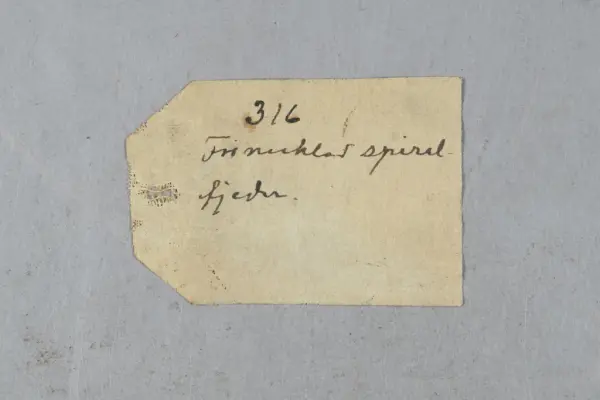 316
Förnicklad spiral-
fjeder.